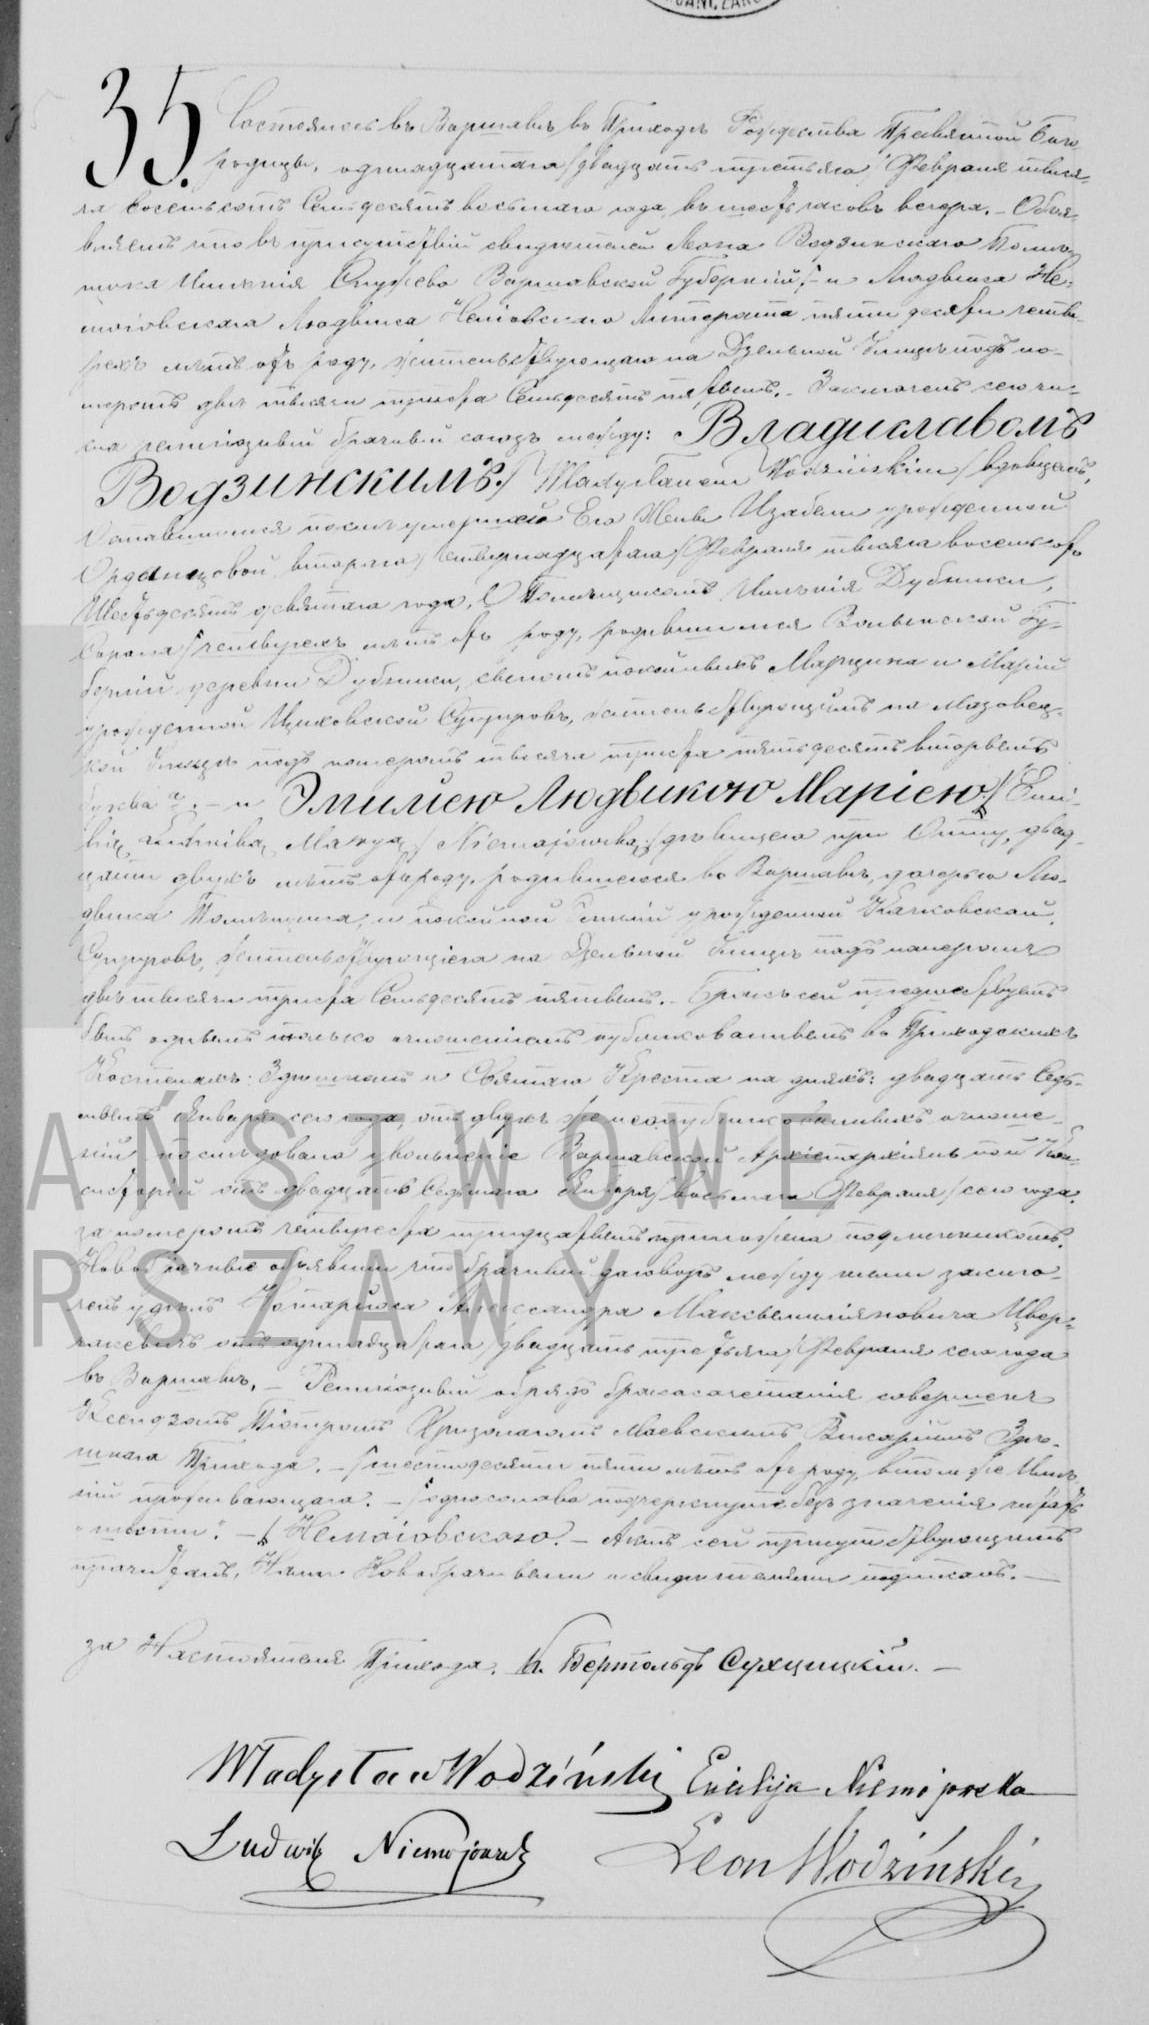 35. Состоялось въ Варшавѣ въ Приходѣ Рождества Пресвятой Бого
родицы, одинадцатаго /двадцать третьяго/ Февраля тысяча
восемьсотъ Семьдесятъ восьмаго года, въ шесть часовъ вечера. – Объя-
вляемъ что въ присутствіи свидѣтелей Леона Водзинскаго Помѣ-
щика Имѣнія Варшавской Губерніи и Людвика Не-
моіовскаго Людвика Немоіовскаго Литерата пяти десяти четы-
рехъ лѣтъ отъ роду, жительствующаго на Дзельной Улицѣ подъ но-
меромъ двѣ тысячи триста Семьдесятъ пятымъ. – Заключенъ сего чи-
сла религіозный брачный союзъ между: Владиславомъ
Водзинскимъ / Władysławem Wodzińskim / вдовцемъ,
Оставшимся послѣ умершей Его Жены Изабели урожденной
втораго /четырнадцатаго/ Февраля тысяча восемьсотъ
Шестьдесятъ девятаго года, Помѣщикомъ Имѣнія Дубники,
Сорока четырехъ лѣтъ отъ роду, родившимся Волынской Гу-
берніи деревни Дубники, сыномъ покойныхъ Марцина и Маріи
урожденной Супруговъ, жительствующимъ на Мазовец-
кой Улицѣ подъ номеромъ тысяча триста пятьдесятъ вторымъ
буква а. – и Эмиліею Людвикою Маріею / Emi-
lią Ludwiką Maryą / Niemojowską / дѣвицею при Отцѣ, двад-
цати двухъ лѣтъ отъ роду, родившеюся въ Варшавѣ, дочерью Лю-
двика Помѣщика, и покойной урожденной Качковской,
Супруговъ, жительствующею на Дзельной Улицѣ подъ номеромъ
двѣ тысячи триста Семьдесятъ пятымъ. – Бракъ сей предшествуемъ
былъ однимъ только оглашеніемъ публикованнымъ въ Приходскихъ
Костелахъ: Здѣшнемъ и Святаго Креста на дняхъ: двадцать Седь-
мымъ Января сего года, отъ двухъ же неопубликованныхъ оглаше-
ній послѣдовало увольненіе Варшавской Архіепархіальной Кон-
систоріи отъ двадцать Седьмаго Января /восьмаго Февраля/ сего года
за номеромъ четыреста тридцатымъ
Новобрачные объявили что брачный договоръ между ними заклю-
ченъ у Нотаріуса Александра Максимиліановича
отъ одинадцатаго /двадцать третьяго/ Февраля сего года
въ Варшавѣ. – Религіозный обрядъ бракосочетанія совершенъ
Ксендзомъ Піотромъ Маевскимъ Викаріемъ Здѣ-
шняго Прихода. – шестидесяти пяти лѣтъ отъ роду, въ томъ же Имѣ-
ніи проживающаго. – одно слово подчеркнутое безъ значенія
– Немоіовскаго. – Актъ сей присутствующимъ
прочитанъ, Нами Новобрачными и свидѣтелями подписанъ. –
за Настоятеля Прихода. К. Бертольдъ Сухцицкій. –
Władysław Wodziński Emilija Niemojowska
Ludwik Niemojowski Leon Wodziński
AŃSTWOWE
RSZAWY